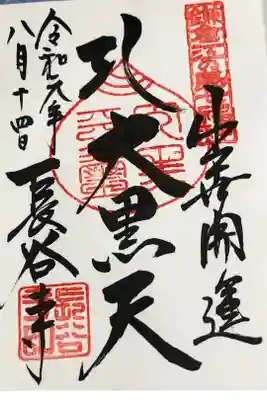 鎌倉江の島七福神
出世開運
大黒天
令和元年
八月十四日
長谷寺